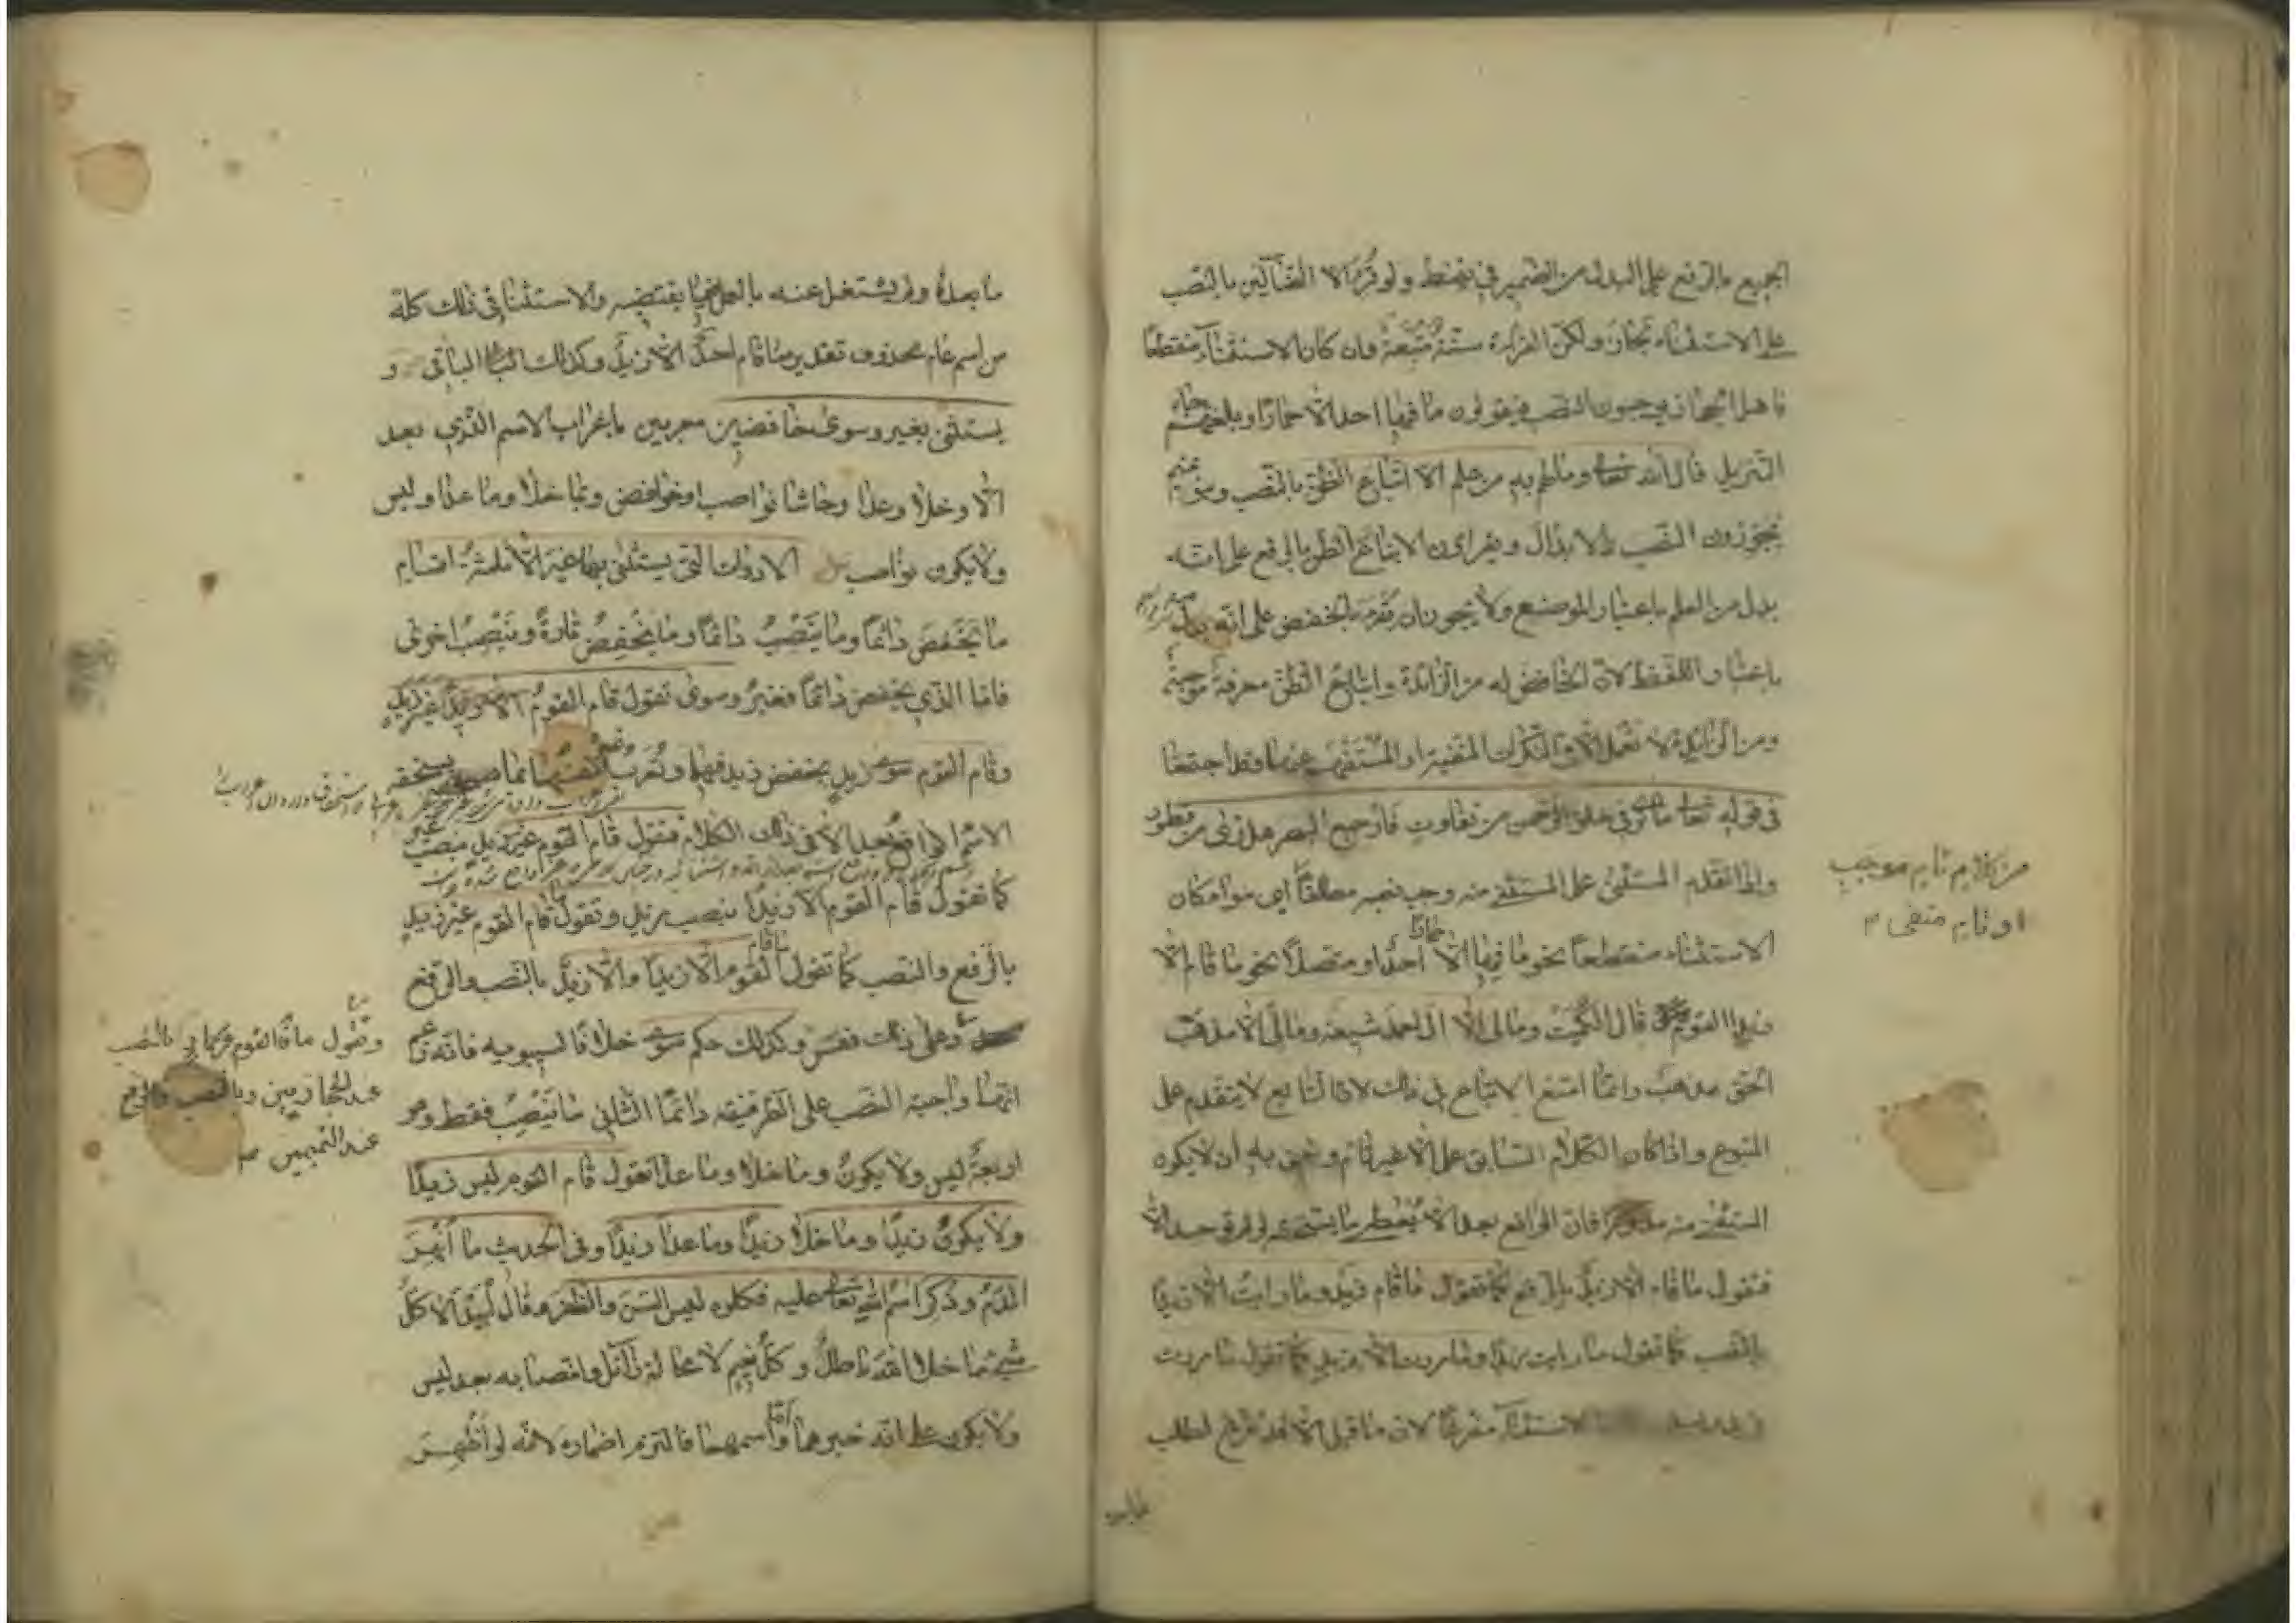 الجميع بالرفع على البدل من الضمير في يقنط ولو قرئ الا الضالين بالنصب
على الاستثناء لجاز ولكن القراءة سنة متبعة وان كان الاستثناء منقطعا
فاهل الحجاز يوجبون النصب فيقولون ما فيها احد الا حمارا وبلغتهم جاء
التنزيل قال الله تعالى وما لهم به من علم الا اتباع الظن بالنصب وبنو تميم
يجوزون النصب والابدال ويقراون الا اتباع الظن بالرفع على انه
بدل من العلم باعتبار الموضع ولا يجوز ان يقرء بالخفض على انه بدل
باعتبار اللفظ لان الخافض له من الزائدة واتباع الظن معرفة موجبة
ومن الزائدة لا تعمل الا في النكرات المنفية او المستفهم عنها وقد اجتمعا
في قوله تعالى ما ترى في خلق الرحمن من تفاوت فارجع البصر هل ترى من فطور
واذا تقدم المستثنى على المستثنى منه وجب نصبه مطلقا اي سواء كان
الاستثناء منقطعا نحو ما فيها الا حمارا احد او متصلا نحو ما قام الا
زيدا القوم قال الكميت وما لي الا آل احمد شيعة وما لي الا مذهب
الحق مذهب وانما امتنع الاتباع في ذلك لان التابع لا يتقدم على
المتبوع واذا كان الكلام السابق على الا غير تام ونعني به ان لا يكون
المستثنى منه مذكورا فان الواقع بعد الا يعطى ما يستحقه لو لم توجد الا
فتقول ما قام الا زيد بالرفع كما تقول ما قام زيد وما رايت الا زيدا
بالنصب كما تقول ما رايت زيدا وما مررت الا بزيد كما تقول ما مررت
الاستثناء مفرغا لان ما قبل الا قد تفرغ لطلب
من كلام تام موجب
او تام منفي
ما بعده ولم يشتغل عنه بالعمل فيما يقتضيه والاستثناء في ذلك كله
من اسم عام محذوف تقدير ما قام احد الا زيد وكذلك الباقي و
يستثنى بغير وسوى خافضين معربين باعراب الاسم الذي بعد
الا وخلا وعدا وحاشا نواصب او خوافض وبما خلا وما عدا وليس
ولا يكون نواصب الادوات التي يستثنى بها غير الا ثلثة اقسام
ما يخفض دائما وما ينصب دائما وما يخفض تارة وينصب اخرى
فاما الذي يخفض دائما فغير وسوى تقول قام القوم غير زيد
وقام القوم سوى زيد بخفض زيد فيهما وتعرب غير نفسها بما يستحقه
الاسم الواقع بعد الا في ذلك الكلام فتقول قام القوم غير زيد بنصب غير
كما تقول قام القوم الا زيدا بنصب زيد وتقول ما قام القوم غير زيد
بالرفع والنصب كما تقول ما قام القوم الا زيدا والا زيد بالنصب والرفع
وعلى ذلك فقس وكذلك حكم سوى خلافا لسيبويه فانه زعم
انها واجبة النصب على الظرفية دائما الثاني ما ينصب فقط وهو
اربعة ليس ولا يكون وما خلا وما عدا تقول قام القوم ليس زيدا
ولا يكون زيدا وما خلا زيدا وما عدا زيدا وفي الحديث ما انهر
الدم وذكر اسم الله تعالى عليه فكلوه ليس السن والظفر وقال لبيد الا كل
شيء ما خلا الله باطل وكل نعيم لا محالة زائل وانتصابه بعد ليس
ولا يكون على انه خبرهما واما اسمهما فالتزم اضماره لانه لو اظهر
وتقول ما
عند الحجازيين وبالنصب والرفع
عند التميميين